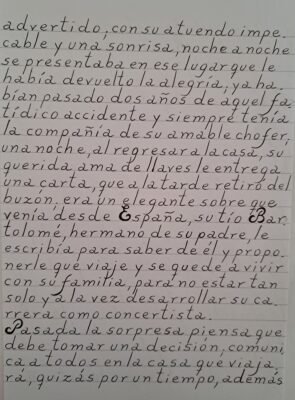 advertido, con su atuendo impe-
cable y una sonrisa, noche a noche
se presentaba en ese lugar que le
había devuelto la alegría, ya ha-
bían pasado dos años de aquel fa-
tídico accidente y siempre tenía
la compañía de su amable chofer,
una noche, al regresar a la casa, su
querida ama de llaves le entrega
una carta, que a la tarde retiró del
buzón, era un elegante sobre que
venía desde España, su tío Bar-
tolomé, hermano de su padre, le
escribía para saber de él y propo-
nerle que viaje y se quede a vivir
con su familia, para no estar tan
solo y a la vez desarrollar su ca-
rrera como concertista.
Pasada la sorpresa piensa que
debe tomar una decisión, comuni-
ca a todos en la casa que viaja-
rá, quizás por un tiempo, además